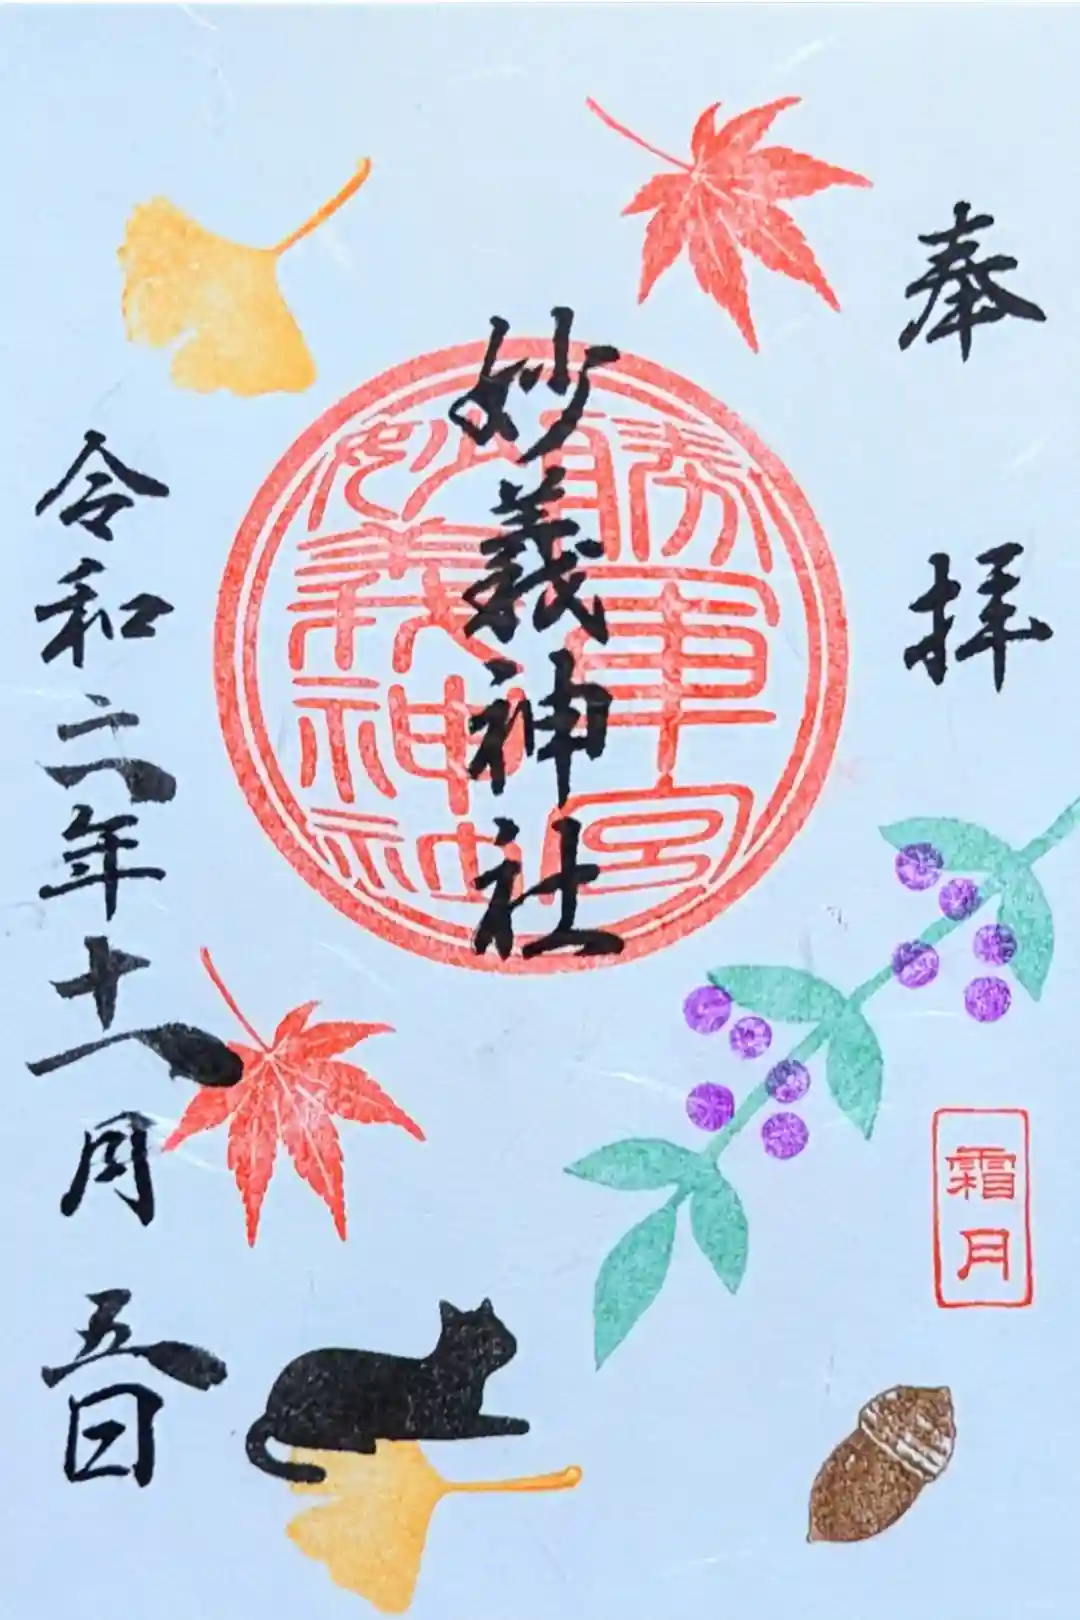 奉拝
妙義神社
勝軍宮
妙義神社
霜月
令和二年十一月五日